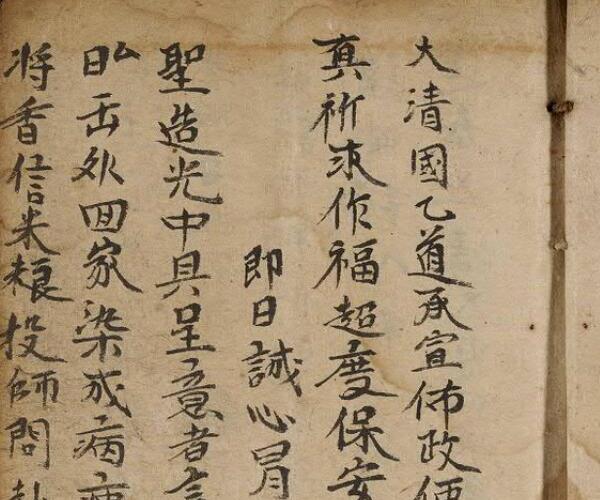 大清國乙道承宣佈政
真祈求作福超度保安
即日誠心冒
聖造光中具呈意者
外回家染成病
将香信米粮投師問